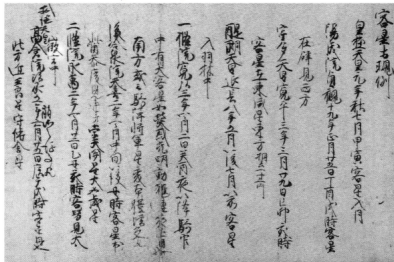 客星出現例
皇極天皇元年秋七月甲寅客星入月
陽成院貞観十九年正月廿五日丁酉戌時客星
在辟見西方
宇多天皇寛平三年三月廿九日己卯亥時
客星在東咸星東方相去一寸所
醍醐天皇延長八年五月以後七月以前客星
入羽林中
一條院寛弘三年四月二日癸酉夜以降騎官
中有大客星如熒惑光明動耀連夜正見
南方或云騎陣将軍星変本体増光
後冷泉院天喜二年四月中旬以後丑時客星出
觜参度見東方孛天関星大如歳星
二條院永萬二年四月廿二日乙丑亥時客星見大
高倉院治承五年六月廿五日庚午戌時客星見
北方近王良守傳舎星